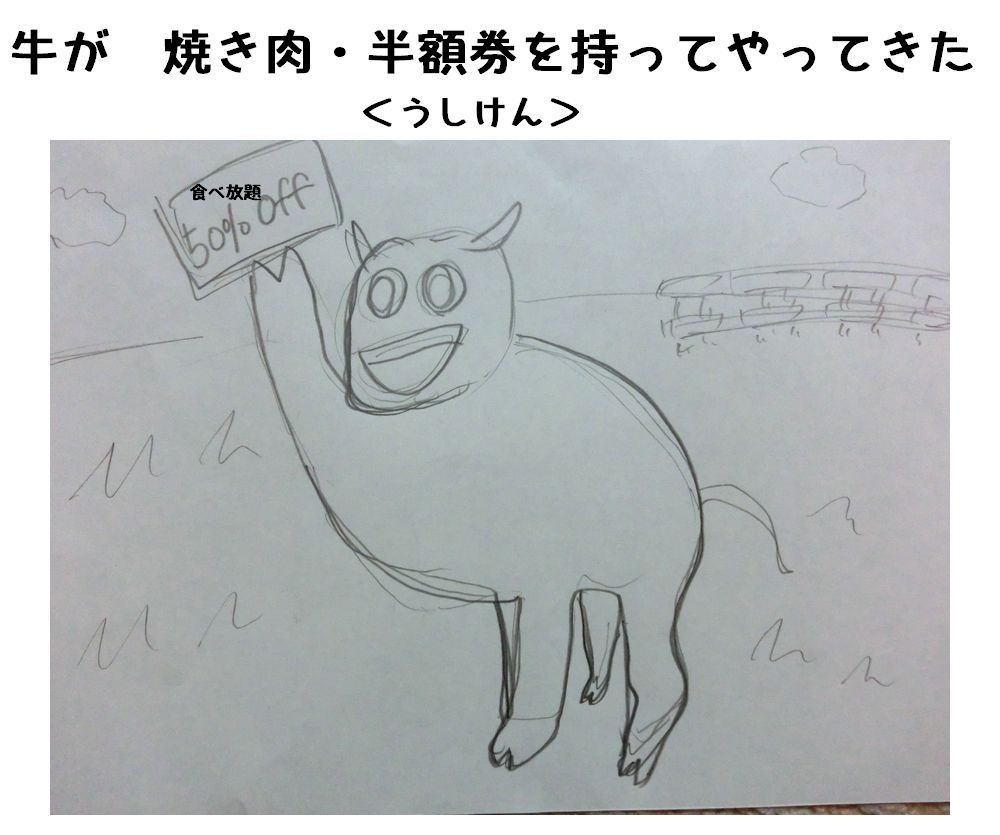 牛が　焼き肉・半額券を持ってやってきた
＜うしけん＞
食べ放題
50% Off